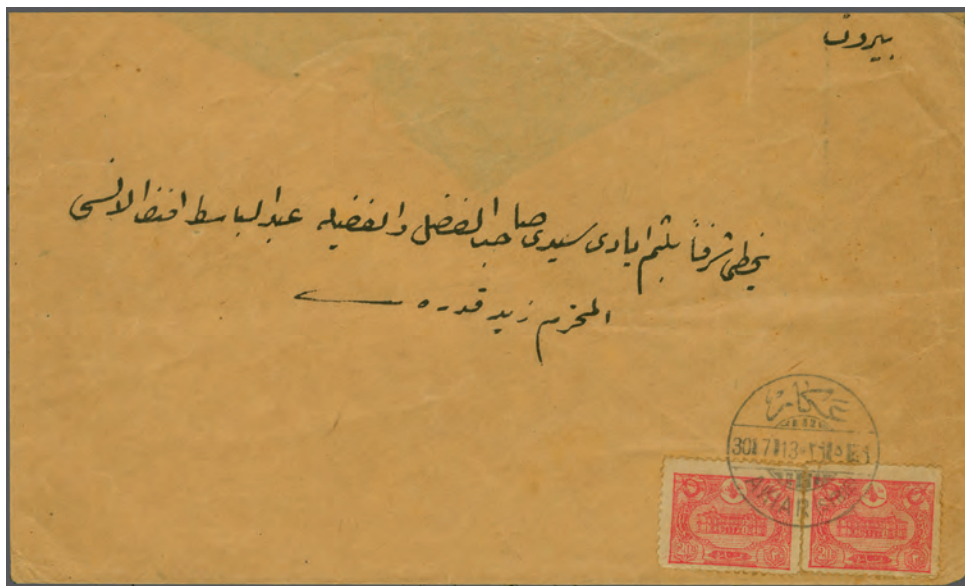 بيروت
يحظى شرفاً بلثم ايادى سيدى صاحب الفضل والفضيله عبد الباسط افندى الانسى
المحترم زيد قدره
عكار
30 7 13
20 20